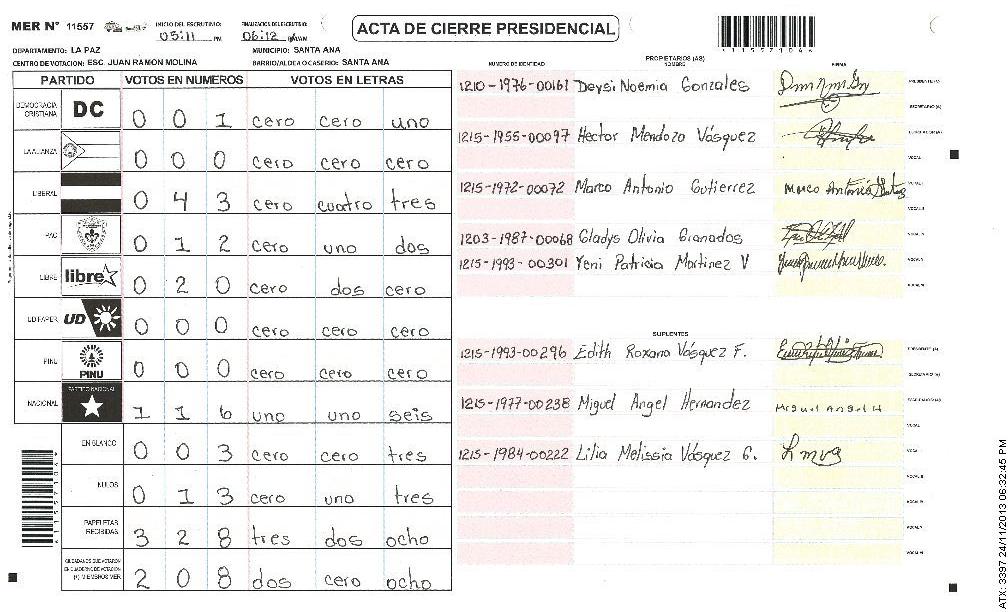 MER N° 11557 INICIO DEL ESCRUTINIO: 05:11 PM FINALIZACION DEL ESCRUTINIO: 06:12 PM/AM
ACTA DE CIERRE PRESIDENCIAL
115571046
DEPARTAMENTO: LA PAZ MUNICIPIO: SANTA ANA
CENTRO DE VOTACION: ESC. JUAN RAMON MOLINA BARRIO/ALDEA O CASERIO: SANTA ANA
PARTIDO VOTOS EN NUMEROS VOTOS EN LETRAS
DEMOCRACIA CRISTIANA DC 0 0 1 cero cero uno
LA ALIANZA 0 0 0 cero cero cero
LIBERAL 0 4 3 cero cuatro tres
PAC 0 1 2 cero uno dos
LIBRE libre 0 2 0 cero dos cero
UD/FAPER UD 0 0 0 cero cero cero
PINU PINU 0 0 0 cero cero cero
NACIONAL PARTIDO NACIONAL 1 1 6 uno uno seis
EN BLANCO 0 0 3 cero cero tres
NULOS 0 1 3 cero uno tres
PAPELETAS RECIBIDAS 3 2 8 tres dos ocho
CIUDADANOS QUE VOTARON EN CUADERNO DE VOTACION (+) MIEMBROS MER 2 0 8 dos cero ocho
PROPIETARIOS (AS)
NUMERO DE IDENTIDAD NOMBRE FIRMA
1210-1976-00161 Deysi Noemia Gonzales PRESIDENTE (A)
SECRETARIO (A)
1215-1955-00097 Hector Mendozo Vásquez ESCRUTADOR (A)
VOCAL I
1215-1972-00072 Marco Antonio Gutierrez Marco Antonio
VOCAL II
1203-1987-00068 Gladys Olivia Granados
1215-1993-00301 Yeni Patricia Martinez V
SUPLENTES
1215-1993-00296 Edith Roxana Vásquez F. PRESIDENTE (A)
SECRETARIO (A)
1215-1977-00238 Miguel Angel Hernandez Miguel Angel H ESCRUTADOR (A)
VOCAL
1215-1984-00222 Lilia Melissia Vásquez G. Lmvg
ATX: 3397 24/11/2013 06:32:45 PM